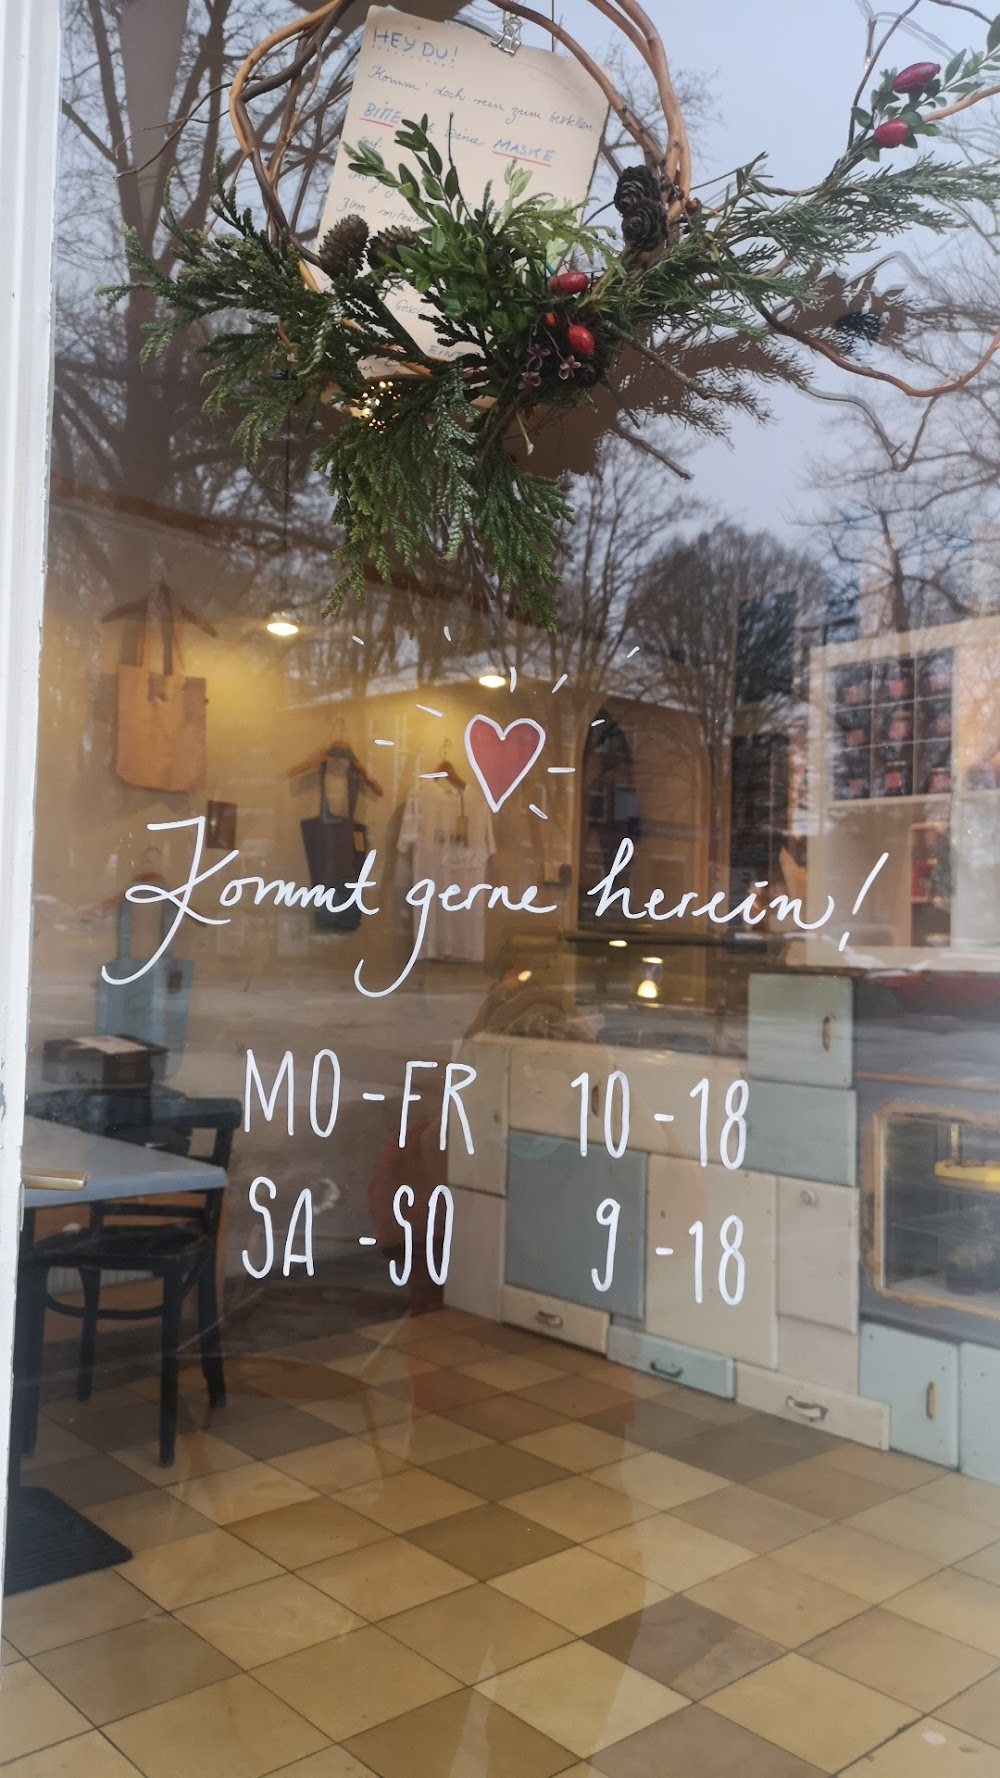 HEY DU!
Komm' doch rein zum bestellen.
BITTE Deine MASKE
auf
zum mitnehm
EINT
Kommt gerne herein!
MO-FR 10-18
SA-SO 9-18